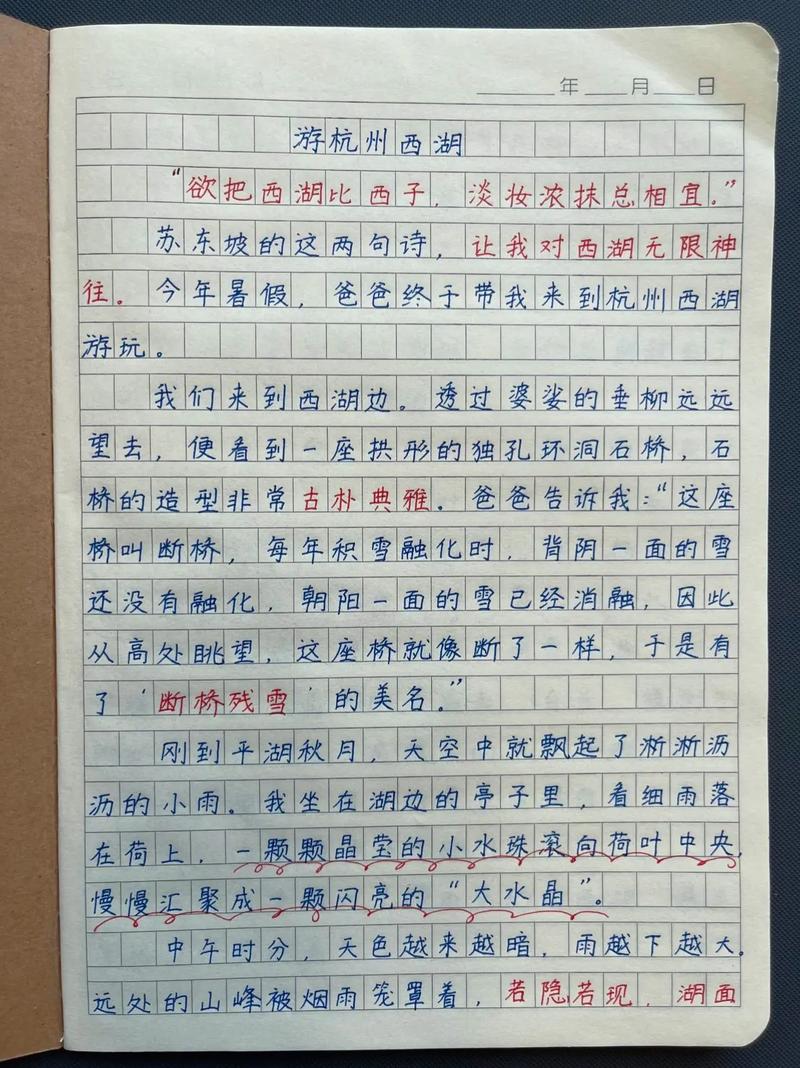 年 月 日
游杭州西湖
“欲把西湖比西子，淡妆浓抹总相宜。”
苏东坡的这两句诗，让我对西湖无限神
往。今年暑假，爸爸终于带我来到杭州西湖
游玩。
我们来到西湖边。透过婆娑的垂柳远远
望去，便看到一座拱形的独孔环洞石桥，石
桥的造型非常古朴典雅。爸爸告诉我：“这座
桥叫断桥，每年积雪融化时，背阴一面的雪
还没有融化，朝阳一面的雪已经消融，因此
从高处眺望，这座桥就像断了一样，于是有
了‘断桥残雪’的美名。”
刚到平湖秋月，天空中就飘起了淅淅沥
沥的小雨。我坐在湖边的亭子里，看细雨落
在荷上，一颗颗晶莹的小水珠滚向荷叶中央，
慢慢汇聚成一颗闪亮的“大水晶”。
中午时分，天色越来越暗，雨越下越大。
远处的山峰被烟雨笼罩着，若隐若现，湖面